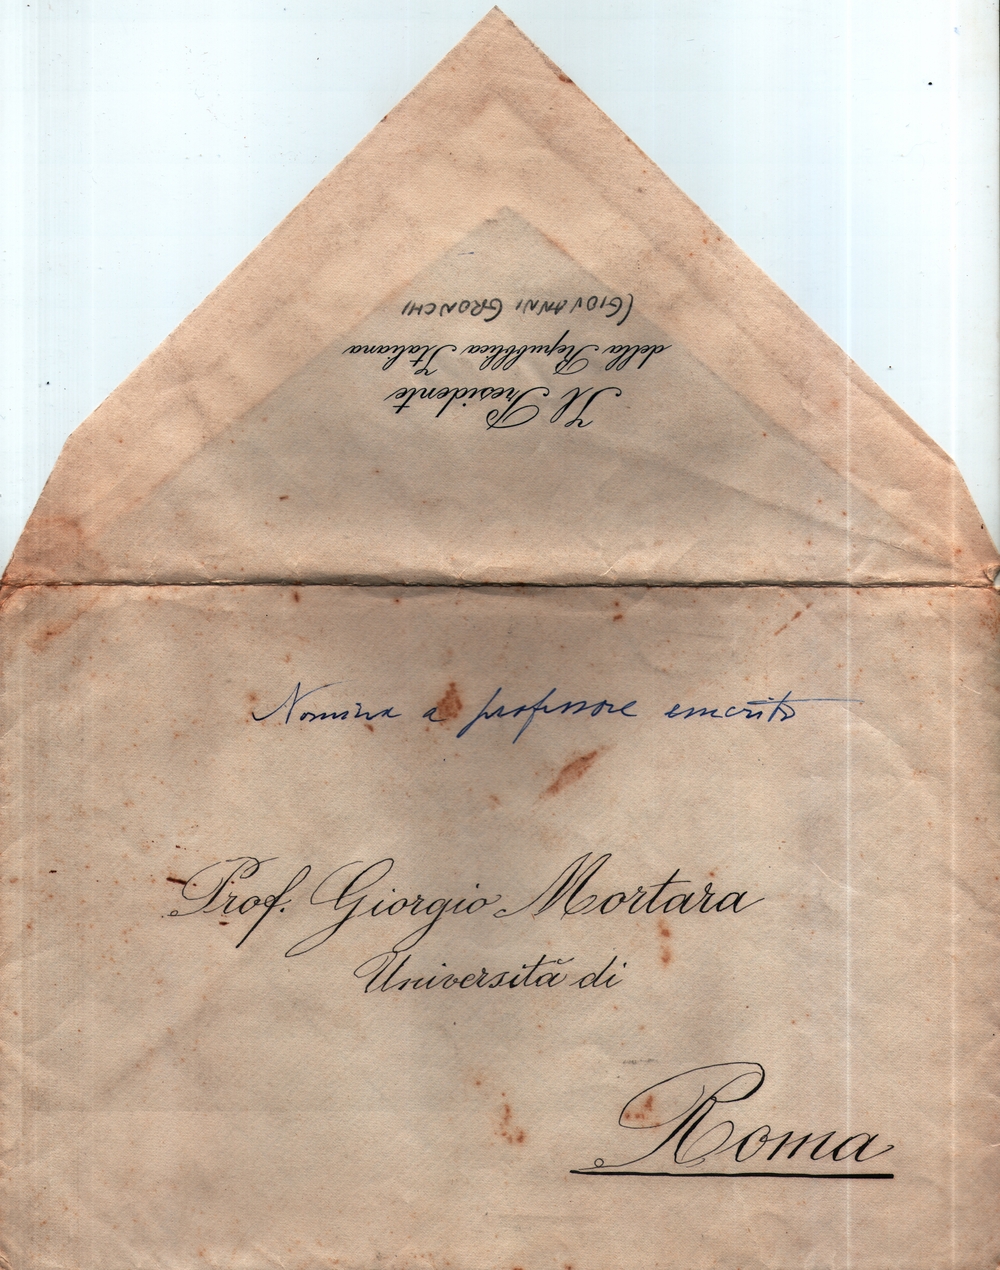 Il Presidente
della Repubblica Italiana
(GIOVANNI GRONCHI
Nomina a professore emerito
Prof. Giorgio Mortara
Università di
Roma